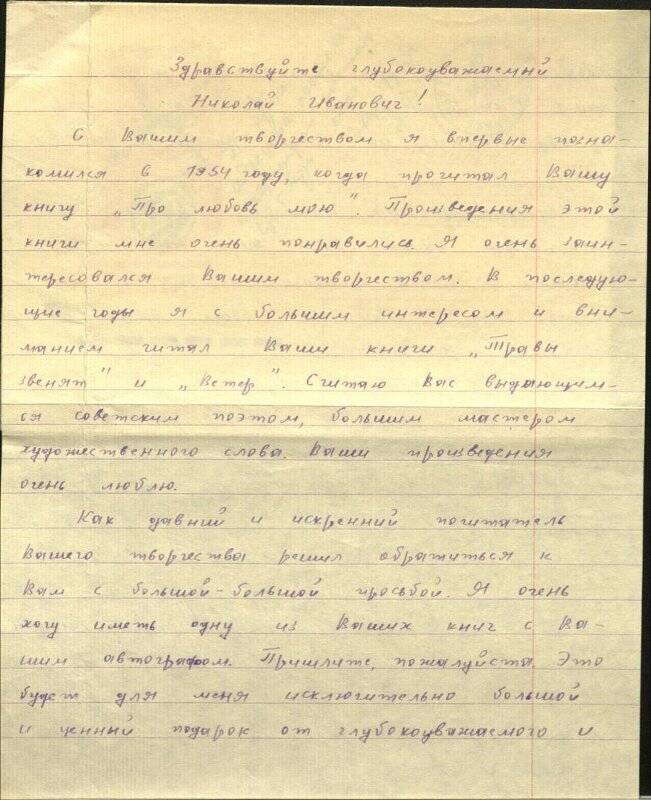 Здравствуйте глубокоуважаемый
Николай Иванович!
С Вашим творчеством я впервые позна-
комился в 1954 году, когда прочитал Вашу
книгу „Про любовь мою". Произведения этой
книги мне очень понравились. Я очень заин-
тересовался Вашим творчеством. В последую-
щие годы я с большим интересом и вни-
манием читал Ваши книги „Травы
звенят" и „Ветер". Считаю Вас выдающим-
ся советским поэтом, большим мастером
художественного слова. Ваши произведения
очень люблю.
Как давний и искренний почитатель
Вашего творчества решил обратиться к
Вам с большой-большой просьбой. Я очень
хочу иметь одну из Ваших книг с Ва-
шим автографом. Пришлите, пожалуйста. Это
будет для меня исключительно большой
и ценный подарок от глубокоуважаемого и